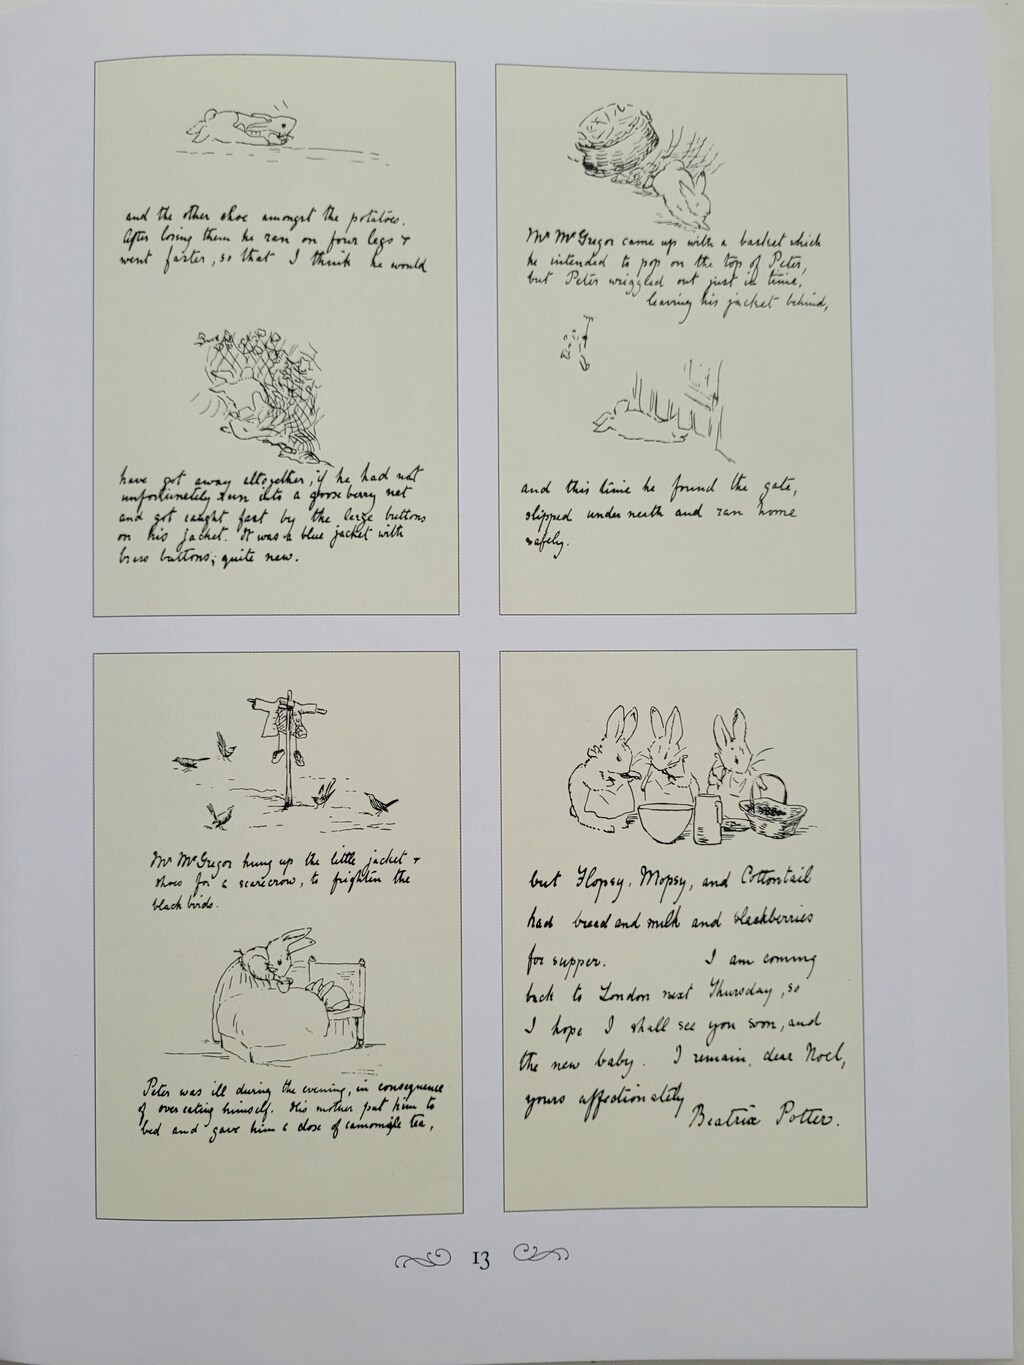 and the other shoe amongst the potatoes.
After losing them he ran on four legs &
went faster, so that I think he would
have got away altogether, if he had not
unfortunately run into a gooseberry net
and got caught fast by the large buttons
on his jacket. It was a blue jacket with
brass buttons; quite new.
Mr McGregor came up with a basket which
he intended to pop on the top of Peter,
but Peter wriggled out just in time,
leaving his jacket behind,
and this time he found the gate,
slipped underneath and ran home
safely.
Mr McGregor hung up the little jacket &
shoes for a scarecrow, to frighten the
black birds.
Peter was ill during the evening, in consequence
of over eating himself. His mother put him to
bed and gave him a dose of camomile tea,
but Flopsy, Mopsy, and Cottontail
had bread and milk and blackberries
for supper. I am coming
back to London next Thursday, so
I hope I shall see you soon, and
the new baby. I remain, dear Noel,
yours affectionately
Beatrix Potter.
13